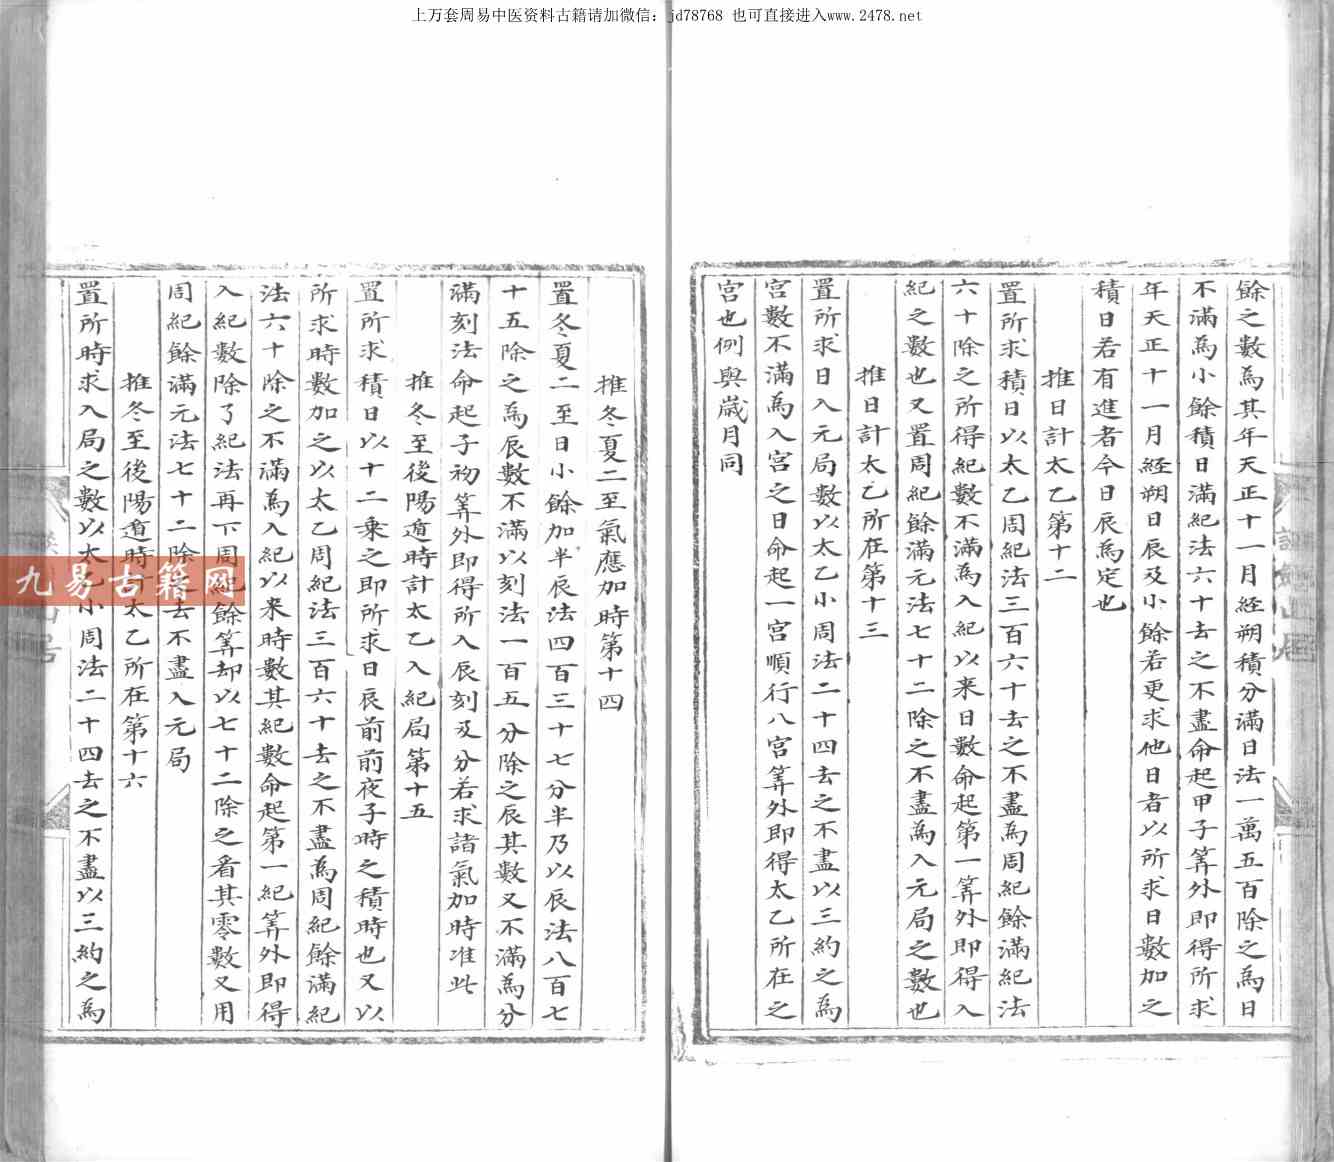 上万套周易中医资料古籍请加微信：jd78768 也可直接进入www.2478.net
餘之數為其年天正十一月經朔積分滿日法一萬五百除之為日
不滿為小餘積日滿紀法六十去之不盡命起甲子筭外即得所求
年天正十一月經朔日辰及小餘若更求他日者以所求日數加之
積日若有進者今日辰為定也
推日計太乙第十二
置所求積日以太乙周紀法三百六十去之不盡為周紀餘滿紀法
六十除之所得紀數不滿為入紀以来日數命起第一筭外即得入
紀之數也又置周紀餘滿元法七十二除之不盡為入元局之數也
推日計太乙所在第十三
置所求日入元局數以太乙小周法二十四去之不盡以三約之為
宮數不滿為入宮之日命起一宮順行八宮筭外即得太乙所在之
宮也例與歲月同
推冬夏二至氣應加時第十四
置冬夏二至日小餘加半辰法四百三十七分半乃以辰法八百七
十五除之為辰數不滿以刻法一百五分除之辰其數又不滿為分
滿刻法命起子初筭外即得所入辰刻及分若求諸氣加時准此
推冬至後陽遁時計太乙入紀局第十五
置所求積日以十二乘之即所求日辰前前夜子時之積時也又以
所求時數加之以太乙周紀法三百六十去之不盡為周紀餘滿紀
法六十除之不滿為入紀以来時數其紀數命起第一紀筭外即得
入紀數除了紀法再下周紀餘筭却以七十二除之看其零數又用
周紀餘滿元法七十二除去不盡入元局
推冬至後陽遁時計太乙所在第十六
置所時求入局之數以太乙小周法二十四去之不盡以三約之為
九易古籍网